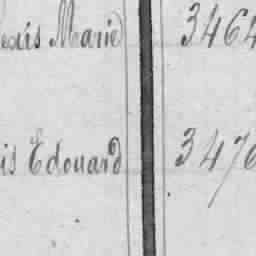 Louis Marie 3464
is Edouard 3476